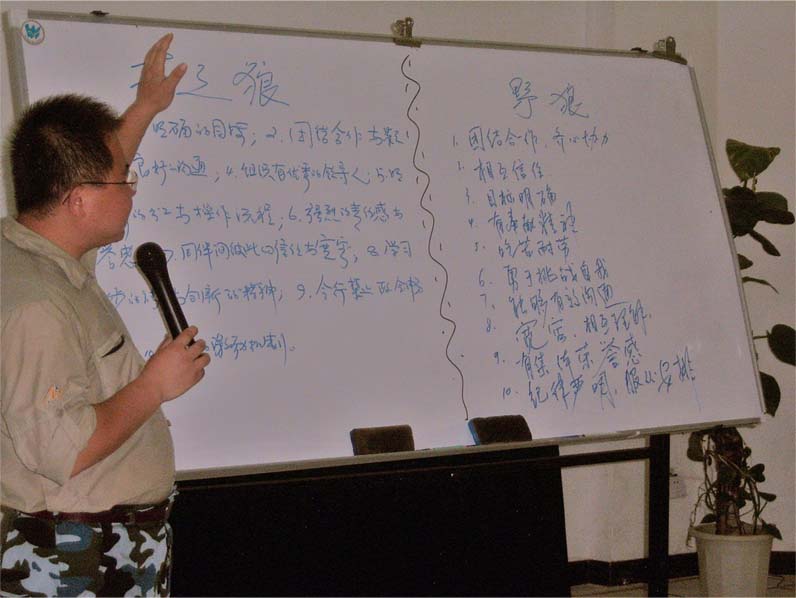 之狼
明确的目标；2.团结合作与默
良好的沟通；4.组织有优秀的领导人；5.明
的分工与操作流程；6.强烈的责任感与
荣誉感 7.同伴间彼此的信任与宽容；8.学习
与创新的精神；9.令行禁止
10. 激励机制。
野狼
1.团结合作、齐心协力
2.相互信任
3.目标明确
4.有奉献精神
5.吃苦耐劳
6.勇于挑战自我
7.能够有效沟通
8.宽容、相互理解.
9.有集体荣誉感
10.纪律严明，服从安排